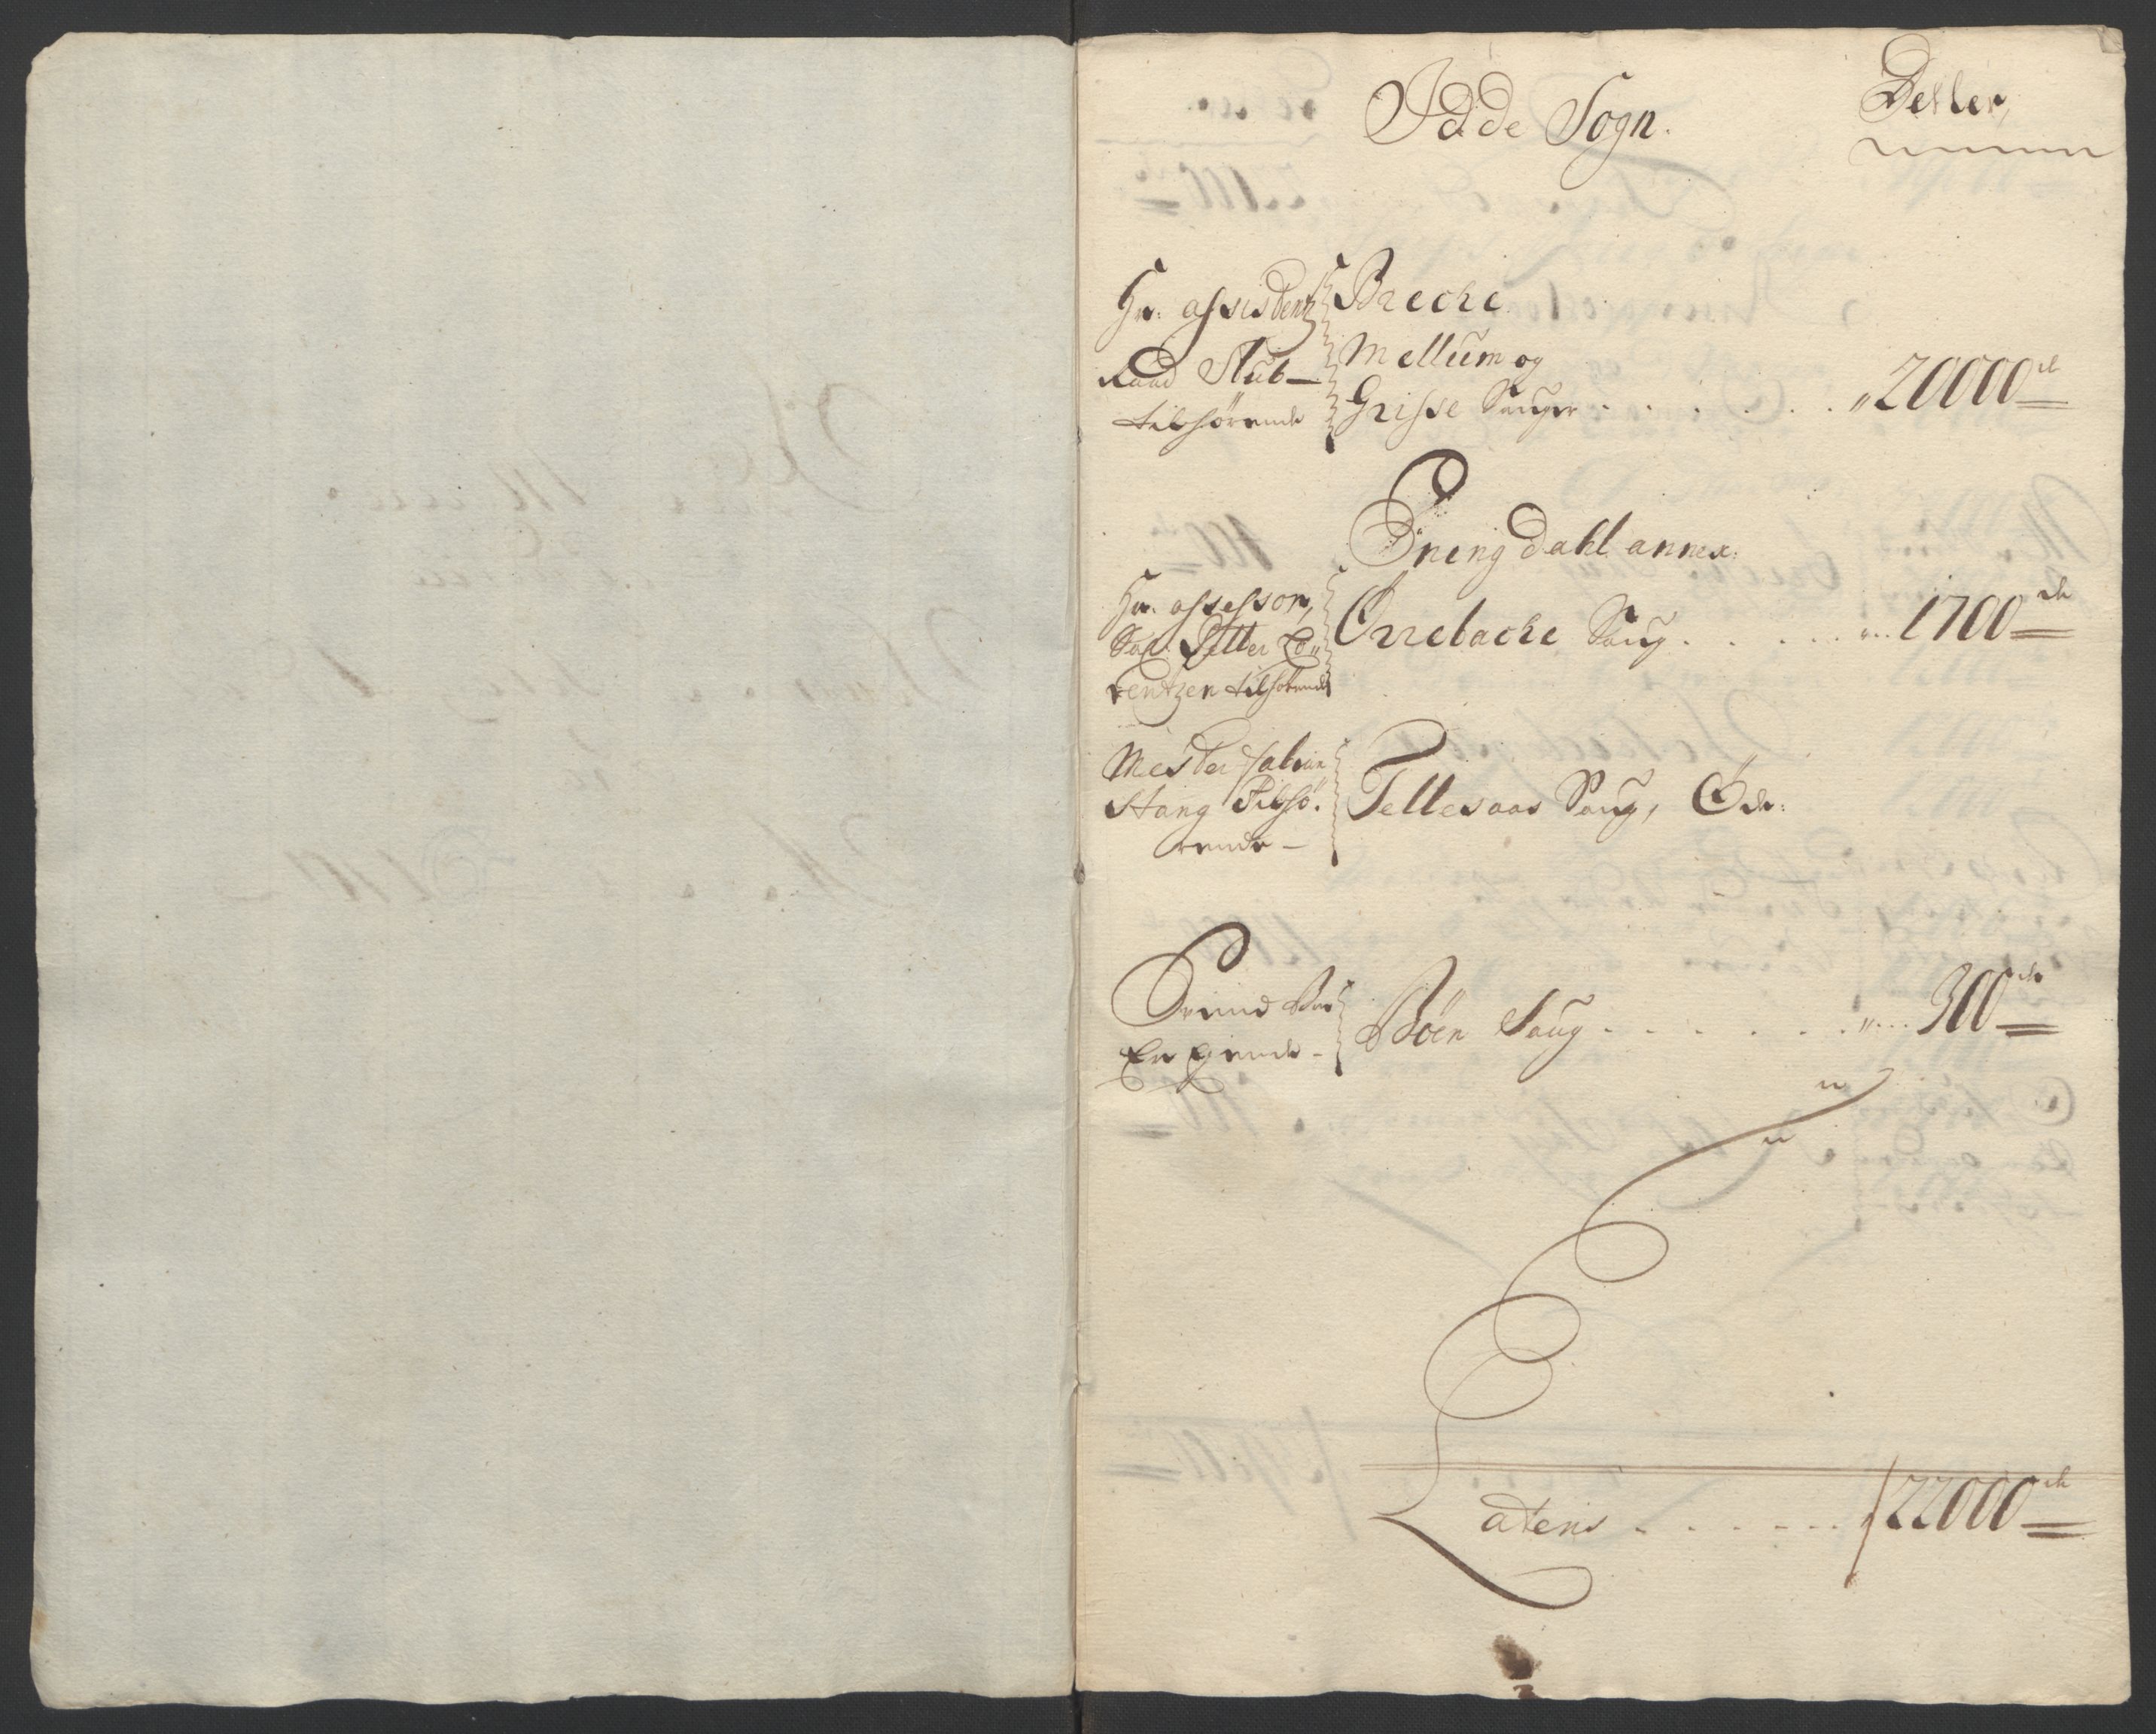 Idde Sogn.
Deller,
Hr: assistentz
Raad Stub
tilhørende
Breche
Mellum og
Grisse Sauger . . . . . . 20000 dl
Enengdahl annex:
Hr. assessor,
Sal: Petter Lo„
rentzen tilhørende
Ørrebache Saug . . . . . 1700 dl
Mester Fabian
Stang Tilhø„
rende –
Tellesaas Saug, Øde:
Svend Bøe
En Ejende –
Böen Saug . . . . . . 300 dl
Latens . . . . . . 22000 dl